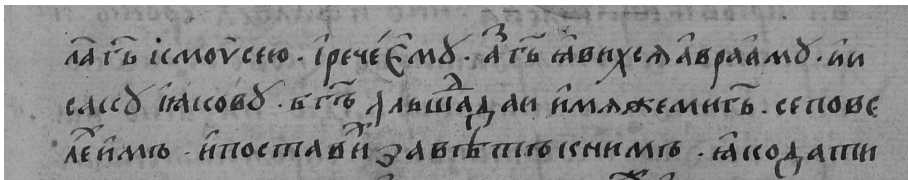 ла гь҃ кмоѵсею . і҆рече́ є҆мꙋ . а҆зъ гь҃ ꙗ҆вихсѧ а҆враа҆мꙋ . и҆и
саакꙋ и҆ꙗковꙋ . бг҃ъ адаи и҆мѧжеми гь҃ . сепове
лѣи҆мъ . и҆поставих завѣтъ книмъ . ꙗ҆кодати